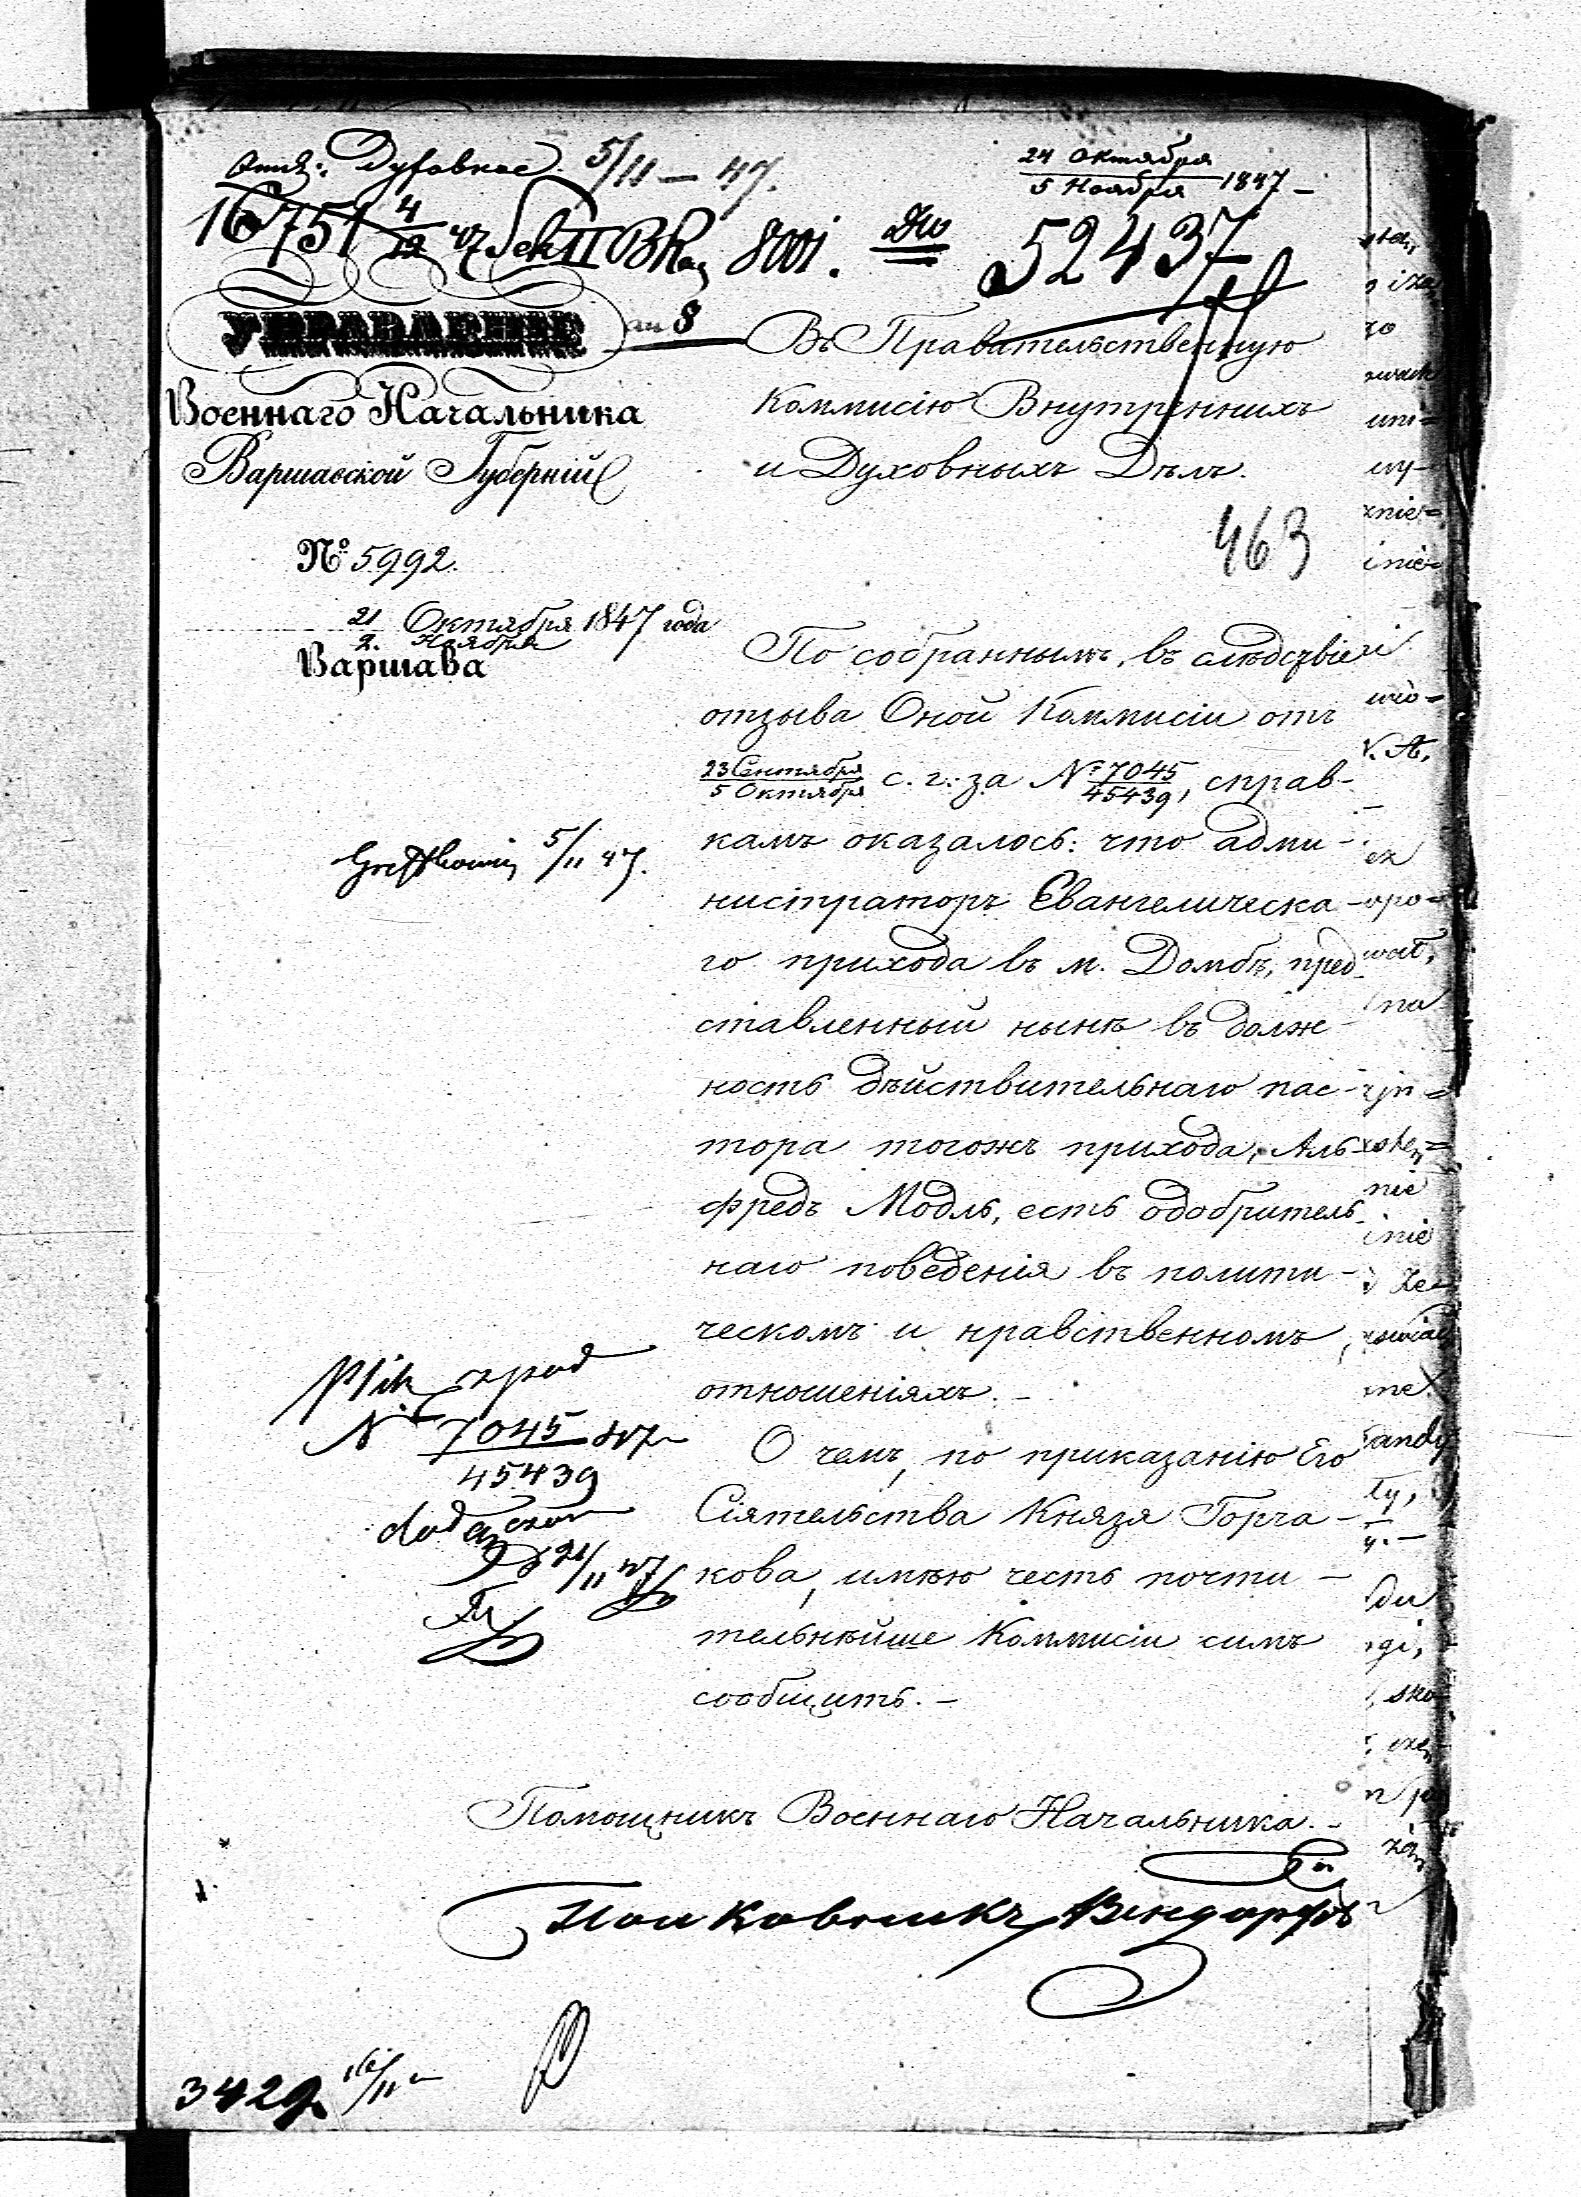 Духовное 5/11 – 47.
24 Октября
5 Ноября 1847 –
16751 4/12 47 8001. 52437
УПРАВЛЕНІЕ
8
Военнаго Начальника
Варшавской Губерніи
№ 5992.
21 Октября 1847 года
2. Ноября
Варшава
Въ Правительственную
Коммисію Внутреннихъ
и Духовныхъ Дѣлъ.
463
По собраннымъ, въ слѣдствіе
отзыва Оной Коммисіи отъ
23 Сентября
5 Октября с. г. за № 7045
45439, справ-
камъ оказалось: что адми-
нистраторъ Евангелическа-
го прихода въ м. Домбѣ, пред-
ставленный нынѣ въ долж-
ность дѣйствительнаго пас-
тора тогожъ прихода, Аль-
фредъ Модль, есть одобритель-
наго поведенія въ полити-
ческомъ и нравственномъ,
отношеніяхъ. –
О чемъ, по приказанію Его
Сіятельства Князя Горча-
кова, имѣю честь почти-
тельнѣйше Коммисіи симъ
сообщить. –
5/11 47.
№ 7045
45439
21/11 47
Помощникъ Военнаго Начальника. –
Полковникъ
3429 16/11